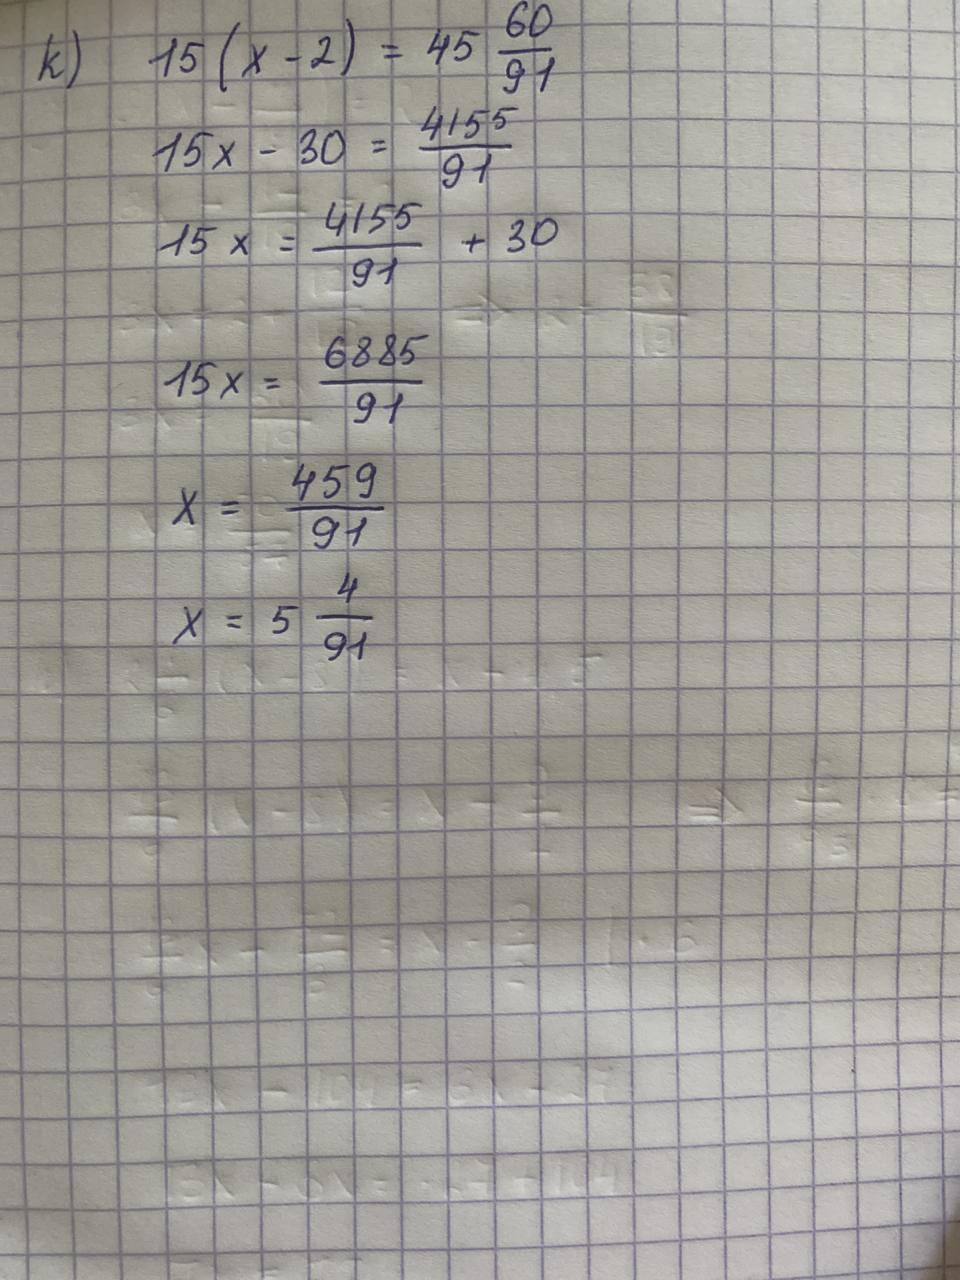 k) 15(x-2) = 45 60/91
15x - 30 = 4155/91
15x = 4155/91 + 30
15x = 6885/91
x = 459/91
x = 5 4/91